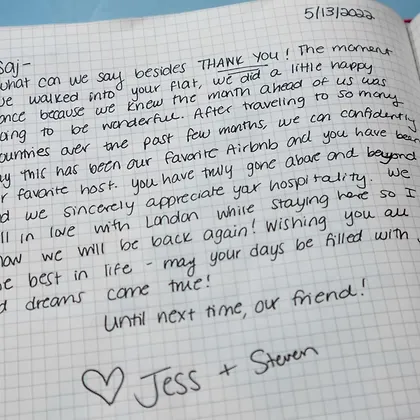 5/13/2022
saj-
what can we say besides THANK YOU! The moment
we walked into your flat, we did a little happy
ance because we knew the month ahead of us was
oing to be wonderful. After traveling to so many
ountries over the past few months, we can confidently
ay this has been our favorite Airbnb and you have been
r favorite host. you have truly gone above and beyond
d we sincerely appreciate your hospitality. we
ll in love with London while staying here so I
now we will be back again! Wishing you all
e best in life - may your days be filled with
d dreams come true!
Until next time, our friend!
♡ Jess + Steven